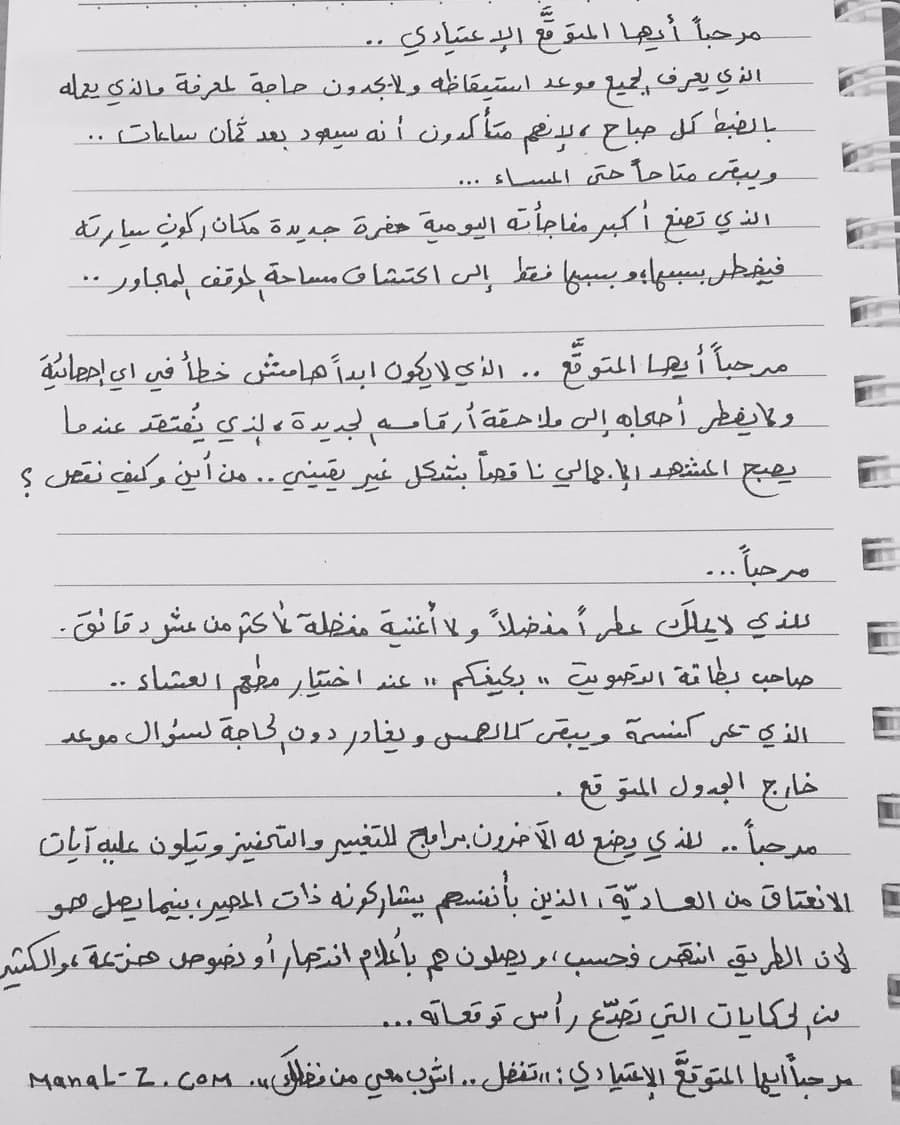 مرحباً أيها المتوقَّع الإعتيادي ..
الذي يعرف الجميع موعد استيقاظه ولا يجدون حاجة لمعرفة مالذي يعمله
بالضبط كل صباح ، لإنهم متأكدون أنه سيعود بعد ثمان ساعات ..
ويبقى متاحاً حتى المساء ...
الذي تصنع أكبر مفاجأته اليومية حفرة جديدة مكان ركون سيارته
فيضطر بسببها، وبسببها فقط إلى اكتشاف مساحة الموقف المجاور ..
مرحباً أيها المتوقَّع .. الذي لا يكون ابداً هامش خطأ في اي إحصائية
ولا يضطر أصحابه إلى ملاحقة أرقامه الجديدة ، الذي يُفتقد عندما
يصبح المشهد الإجمالي ناقصاً بشكل غير يقيني .. من أين وكيف نقص ؟
مرحباً ...
للذي لا يملك عطراً مفضلاً ولا أغنية مفضلة لأكثر من عشر دقائق .
صاحب بطاقة التصويت "بكيفكم" عند اختيار مطعم العشاء ..
الذي تمر كنسمة ويبقى كالهمس ويغادر دون الحاجة لسؤال موعد
خارج الجدول المتوقع .
مرحباً .. للذي يضع له الآخرون برامج للتغيير والتحفيز ويتلون عليه آيات
الانعتاق من العاديّة ، الذين بأنفسهم يشاركونه ذات المصير، بينما يصل هو
لان الطريق انتهى فحسب ، ويصلون هم بأعلام انتصار أو نصوص مخترعة ، والكثير
من الحكايات التي تصدّع رأس توقعاته ...
مرحباً أيها المتوقَّع الإعتيادي : "تفضل .. اشرب معي من فضلك" . Manal-Z.com